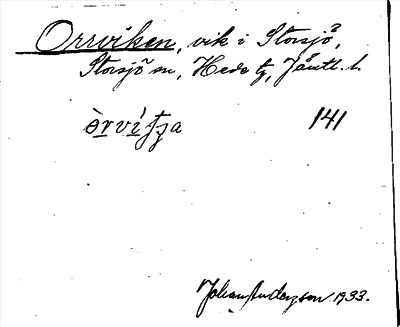 Orrviken, vik i Storsjö,
Storsjö sn, Hede tg, Jämtl. l.
141
Johan Anderzson 1933.